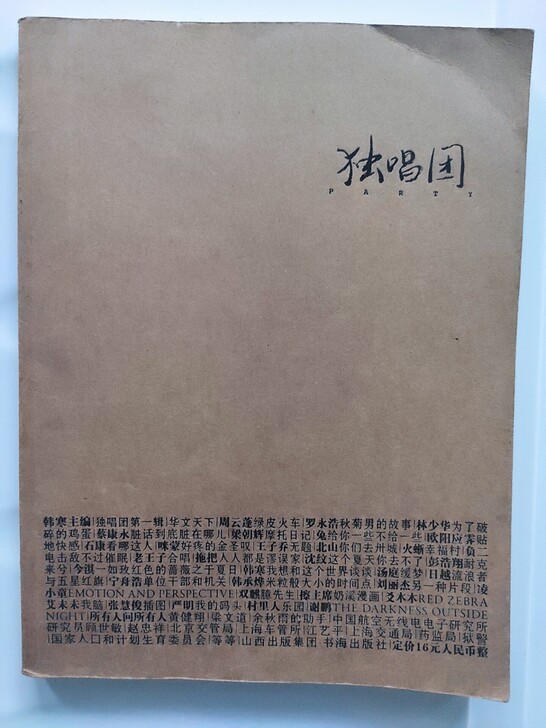 独唱团
PARTY
韩寒主编|独唱团第一辑|华文天下|周云蓬绿皮火车|罗永浩秋菊男的故事|林少华为了破
碎的鸡蛋|蔡康永脏话到底脏在哪儿|梁朝辉摩托日记|兔给你一些不给一些|欧阳应霁贴
地快感|石康看哪这人|咪蒙好疼的金圣叹|王子乔无题|北山你们去卅城|火蜥幸福村|负二
电击敌不过催眠|老王子合唱|拖把人人都是谬误家|沈纹这个夏天你去不了|彭浩翔耐克
来兮|今淇一如玫红色的蔷薇之于夏日|韩寒我想和这个世界谈谈|汤庭缓梦|日越流浪者
与五星红旗|宁舟浩单位干部和机关|韩承烨米粒般大小的时间点|刘丽杰另一种片段|凌
小童EMOTION AND PERSPECTIVE|双麒麟先生|擦主席奶溪漫画|爻本本RED ZEBRA
艾未未我脑|张慧俊插图|严明我的码头|村里人乐团|谢鹏THE DARKNESS OUTSIDE
NIGHT|所有人问所有人黄健翔|梁文道|余秋雨的助手|中国航空无线电电子研究所
研究员顾世敏|赵忠祥|北京交管局|上海车管所|江艺平|上海交通局|药监局|狱警
|国家人口和计划生育委员会|等等|山西出版集团 书海出版社|定价16元人民币整